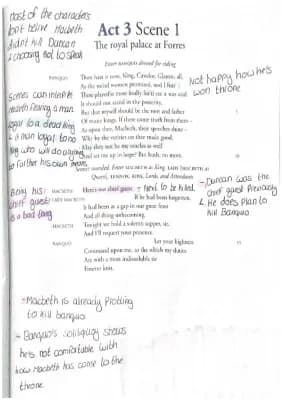 most of the characters
but belive Macbeth
didnt kill Duncan
& choosing not to speak
Act 3 Scene 1
The royal palace at Forres
Enter BANQUO dressed for riding
BANQUO
Thou hast it now, King, Cawdor, Glamis, all,
As the weird women promised, and I fear
Thou played'st most foully for't; yet it was said
It should not stand in thy posterity,
But that myself should be the root and father
Of many kings. If there come truth from them –
As upon thee, Macbeth, their speeches shine –
Why by the verities on thee made good,
May they not be my oracles as well
And set me up in hope? But hush, no more.
Not happy how he's
won throne
Scenes can interpth
a man
loyal to a dead king
& a man loyal to no
king who will do anything
to further his own
MACBETH
Here's our chief guest.
LADY MACBETH
If he had been forgotten,
It had been as a gap in our great feast
And all thing unbecoming.
MACBETH
Tonight we hold a solemn supper, sir,
And I'll request your presence.
BANQUO
Let your highness
15
Command upon me, to the which my duties
Are with a most indissoluble tie
Forever knit.
Being his
chief guest
is a bad thing
tend to be killed.
- Duncan was the
chief guest Previously
& He does Plan to
Kill Banquo
- Macbeth is already Plotting
to kill banquo
- Banquo's soliloquy shows
he's not comfortable with
how Macbeth has come to the
throne